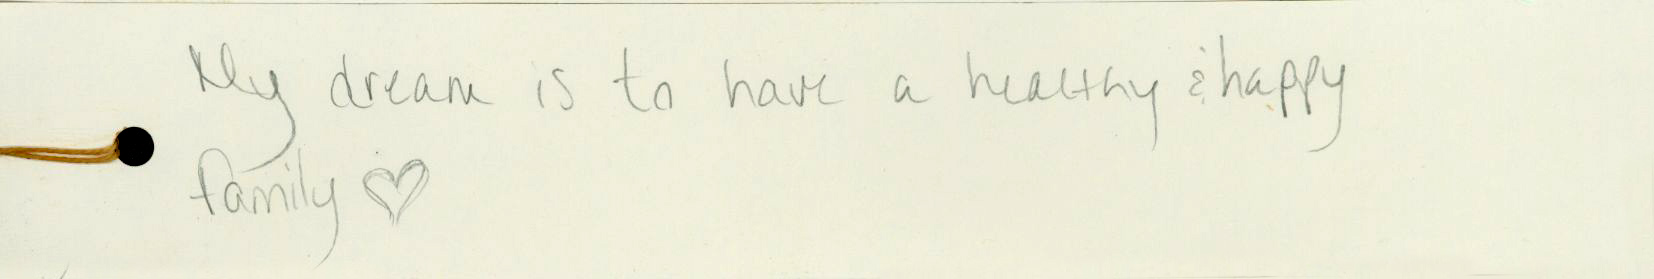 My dream is to have a healthy & happy
family ♡